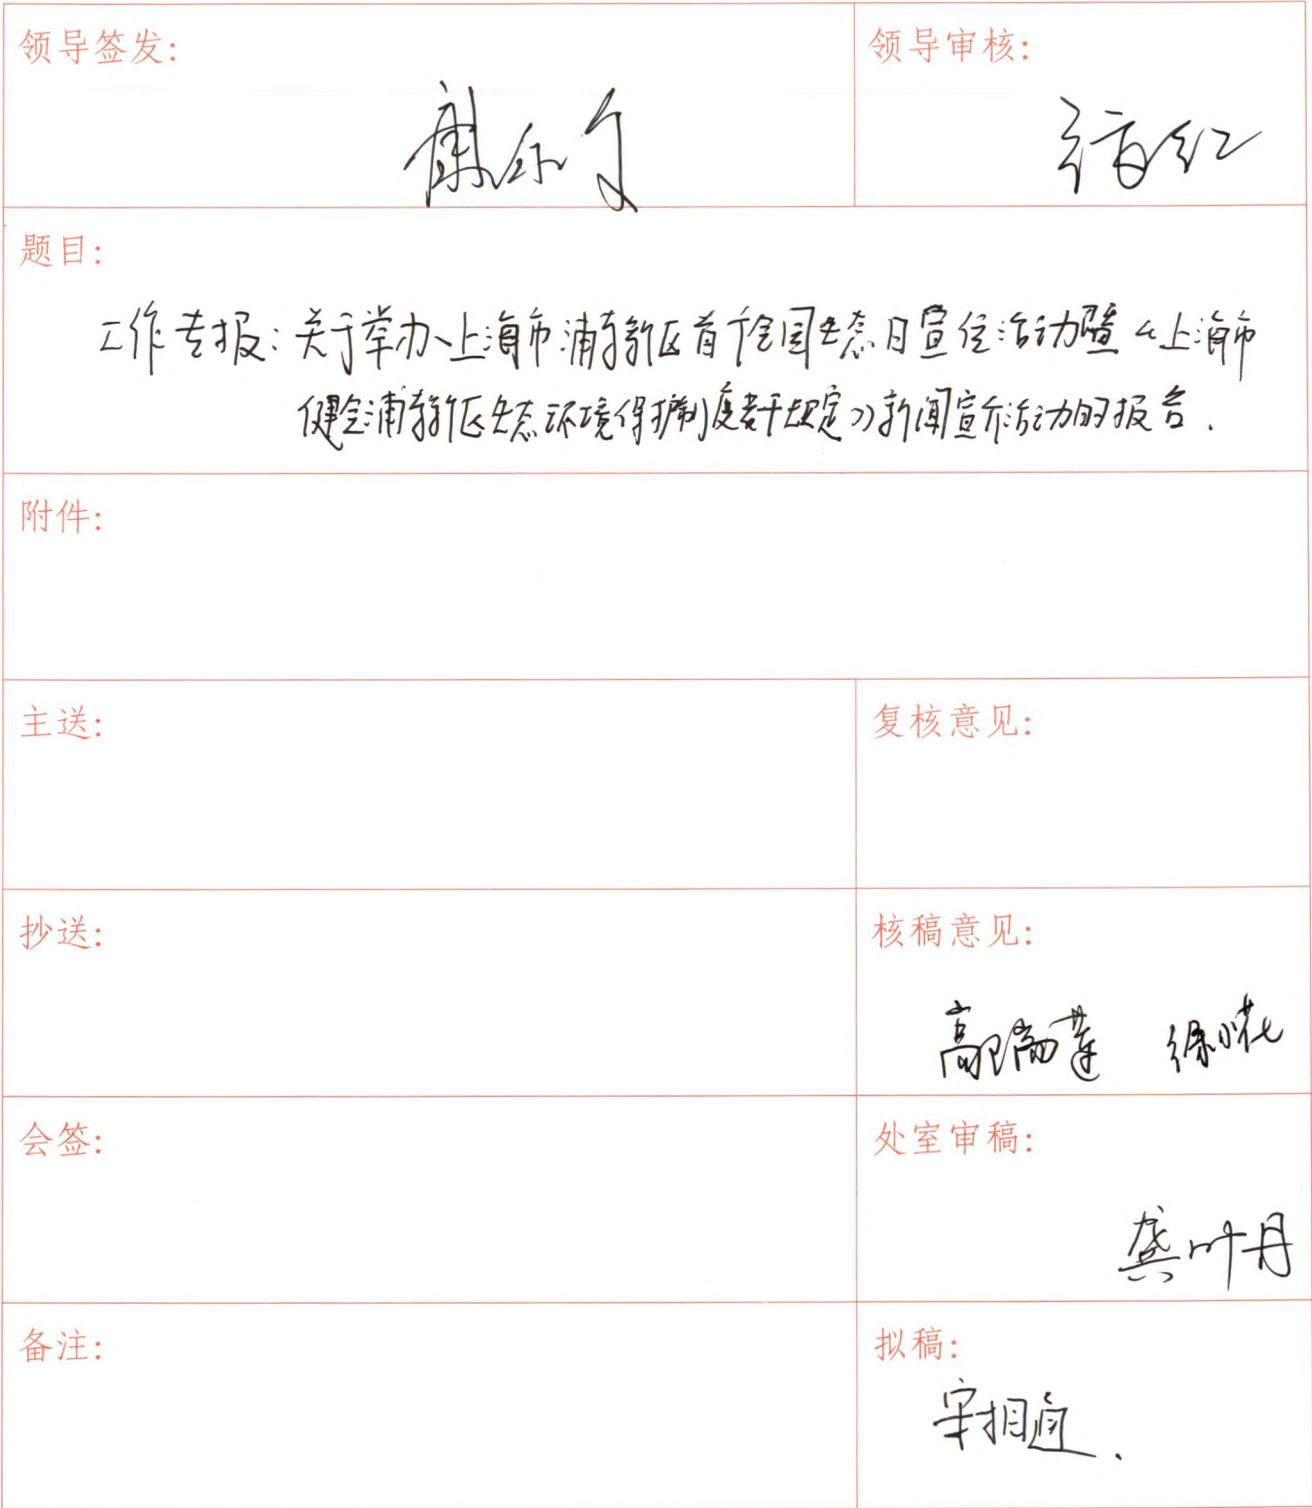 领导签发:
领导审核:
红
题目:
工作专报:关于举办上海市浦东新区首个全国生态日宣传活动暨《上海市
健全浦东新区生态环境保护制度若干规定》新闻宣介活动的报告.
附件:
主送:
复核意见:
抄送:
核稿意见:
高瑞莲 徐小花
会签:
处室审稿:
龚叶丹
备注:
拟稿:
宋相通.